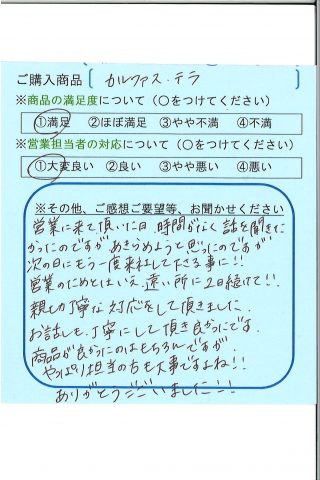 ご購入商品 〔 カルファス・テラ
※商品の満足度について(○をつけてください)
①満足 ②ほぼ満足 ③やや不満 ④不満
※営業担当者の対応について(○をつけてください)
①大変良い ②良い ③やや悪い ④悪い
※その他、ご感想ご要望等、お聞かせください
営業に来て頂いた日、時間がなく話を聞きた
かったのですがあきらめようと思ったのですが
次の日にもう一度来社して下さる事に!!
営業のためとはいえ、遠い所に2日続けて!!
親切丁寧な対応をして頂きました。
お話しも、丁寧にして頂き良かったです。
商品が良かったのはもちろんですが、
やっぱり担当の方も大事ですよね!!
ありがとうございました!!